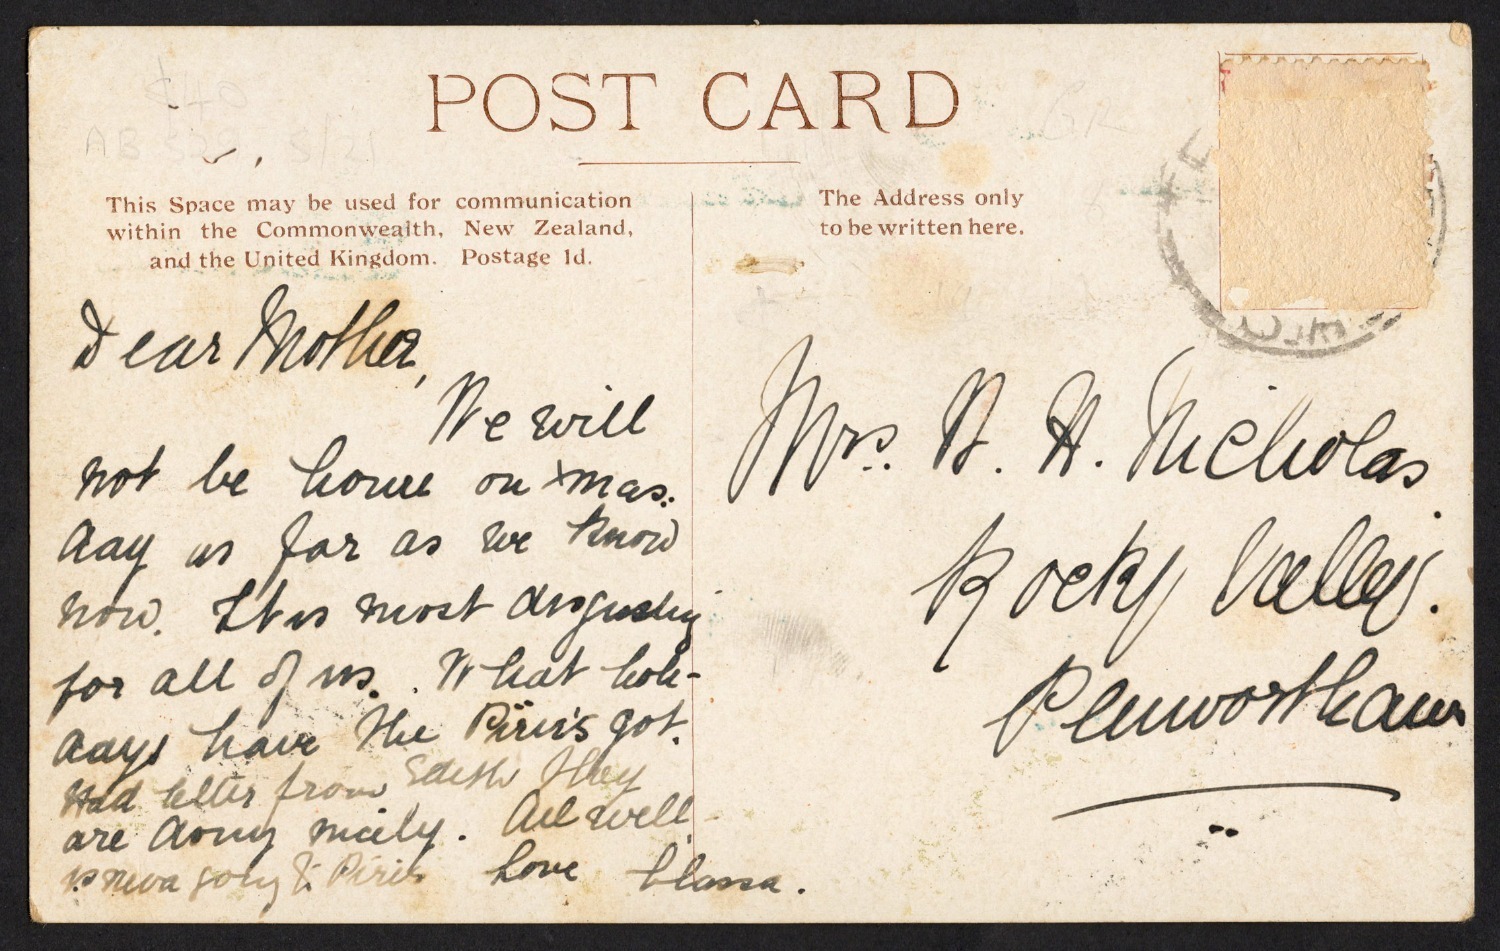 POST CARD
This Space may be used for communication
within the Commonwealth, New Zealand,
and the United Kingdom. Postage 1d.
The Address only
to be written here.
Dear Mother,
We will
not be home on Xmas.
day as far as we know
now. It is most disgusting
for all of us. What holi-
days have the Pirie's got.
Had letter from Edith They
are doing nicely. All well
going to Pirie
Love Classa.
Mrs. H. H. Nicholas
Rocky Valley.
Penwortham